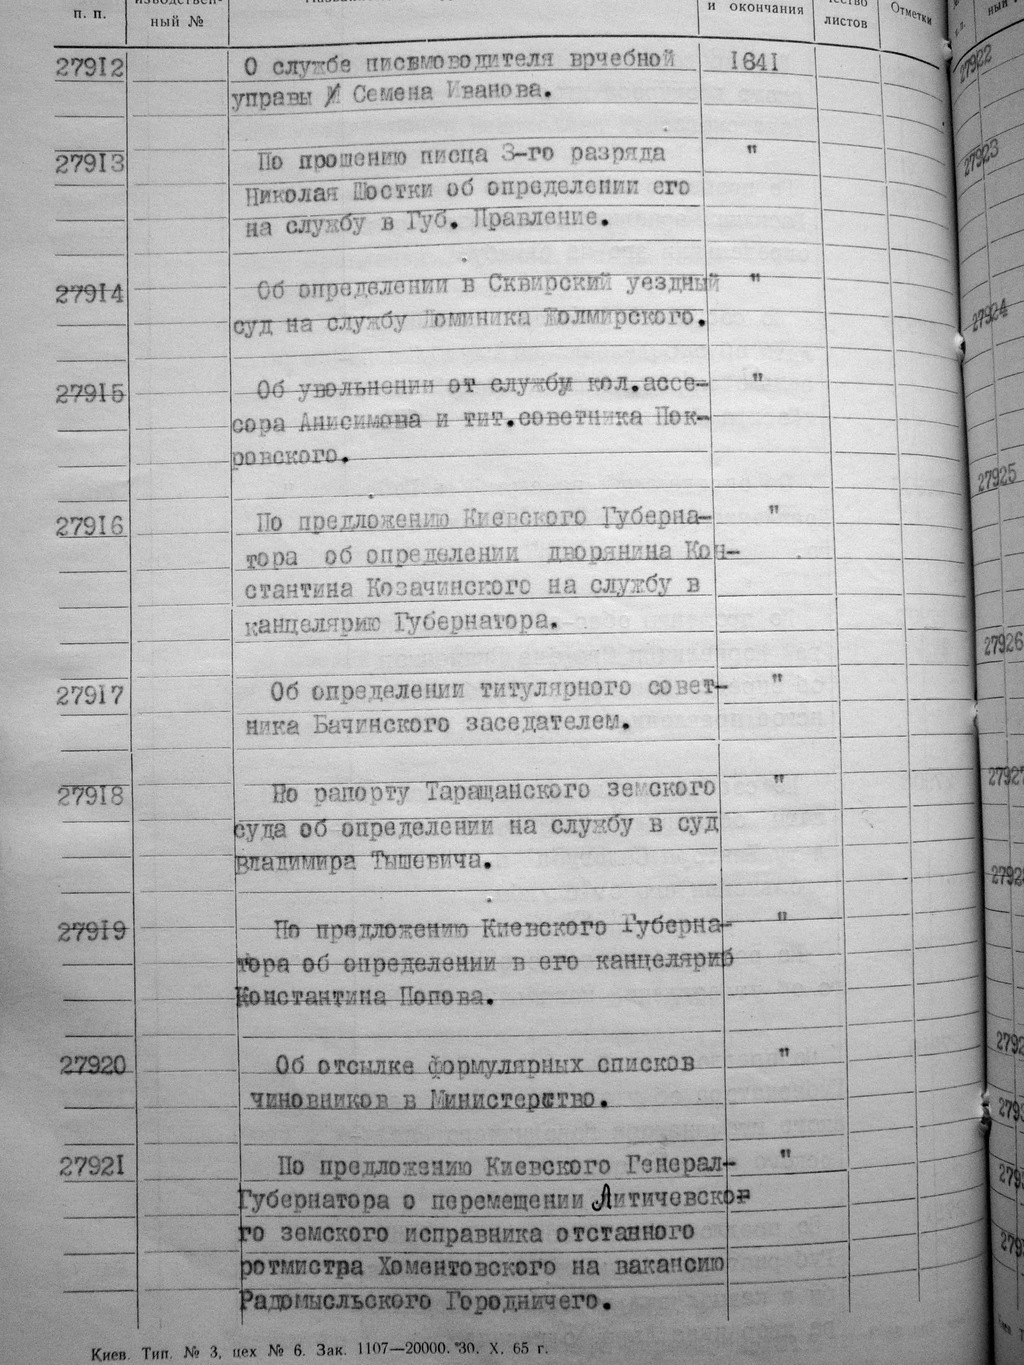 п. п.
ный №
и окончания
листов
Отметки
27912 О службе письмоводителя врчебной 1841
управы И Семена Иванова.
27913 По прошению писца 3-го разряда "
Николая Шостки об определении его
на службу в Губ. Правление.
27914 Об определении в Сквирский уездный "
суд на службу Доминика Жолмирского.
27915 Об увольнении от службу кол.ассе- "
сора Анисимова и тит.советника Пок-
ровского.
27916 По предложению Киевского Губерна- "
тора об определении дворянина Кон-
стантина Козачинского на службу в
канцелярию Губернатора.
27917 Об определении титулярного совет- "
ника Бачинского заседателем.
27918 По рапорту Таращанского земского "
суда об определении на службу в суд
Владимира Тышевича.
27919 По предложению Киевского Губерна- "
тора об определении в его канцеляриб
Константина Попова.
27920 Об отсылке формулярных списков "
чиновников в Министерство.
27921 По предложению Киевского Генерал- "
Губернатора о перемещении Литичевско
го земского исправника отстанного
ротмистра Хоментовского на вакансию
Радомысльского Городничего.
Киев. Тип. № 3, цех № 6. Зак. 1107—20000. 30. X. 65 г.
27922
27923
27924
27925
27926
27927